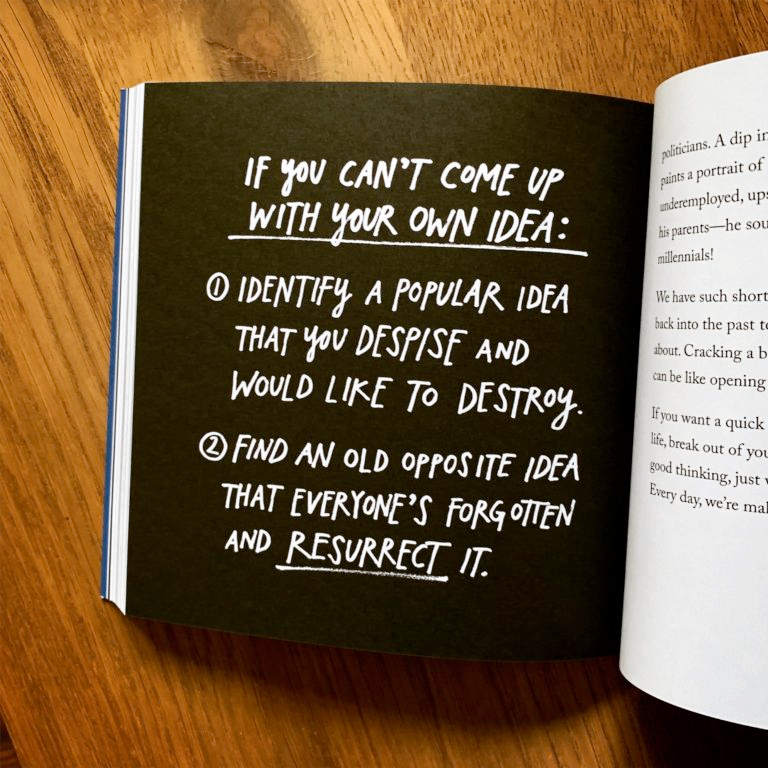 IF YOU CAN'T COME UP
WITH YOUR OWN IDEA:
① IDENTIFY A POPULAR IDEA
THAT YOU DESPISE AND
WOULD LIKE TO DESTROY.
② FIND AN OLD OPPOSITE IDEA
THAT EVERYONE'S FORGOTTEN
AND RESURRECT IT.
politicians. A dip in
paints a portrait of
underemployed, ups
his parents—he sou
millennials!
We have such short
back into the past to
about. Cracking a b
can be like opening
If you want a quick
life, break out of you
good thinking, just
Every day, we're mal